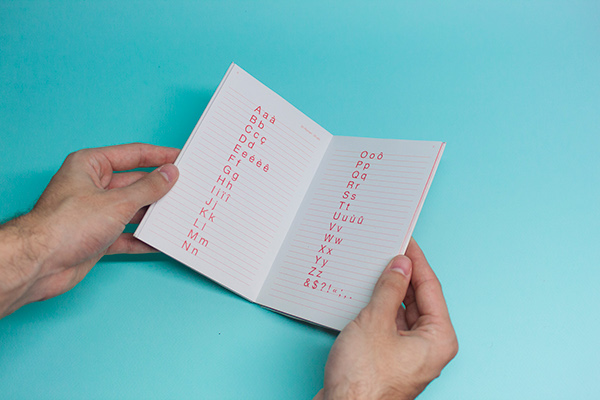 Aaà
Bb
Ccç
Dd
Eeéèê
Ff
Gg
Hh
Iiïî
Jj
Kk
Ll
Mm
Nn
Ooô
Pp
Qq
Rr
Ss
Tt
Uuùû
Vv
Ww
Xx
Yy
Zz